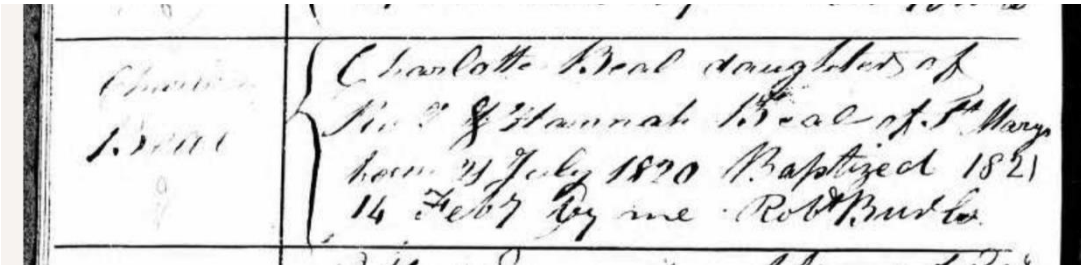 Charlotte
Beal
Charlotte Beal daughter of
& Hannah Beal of St Marys
born 21 July 1820 Baptized 1821
14 Feby by me Robt